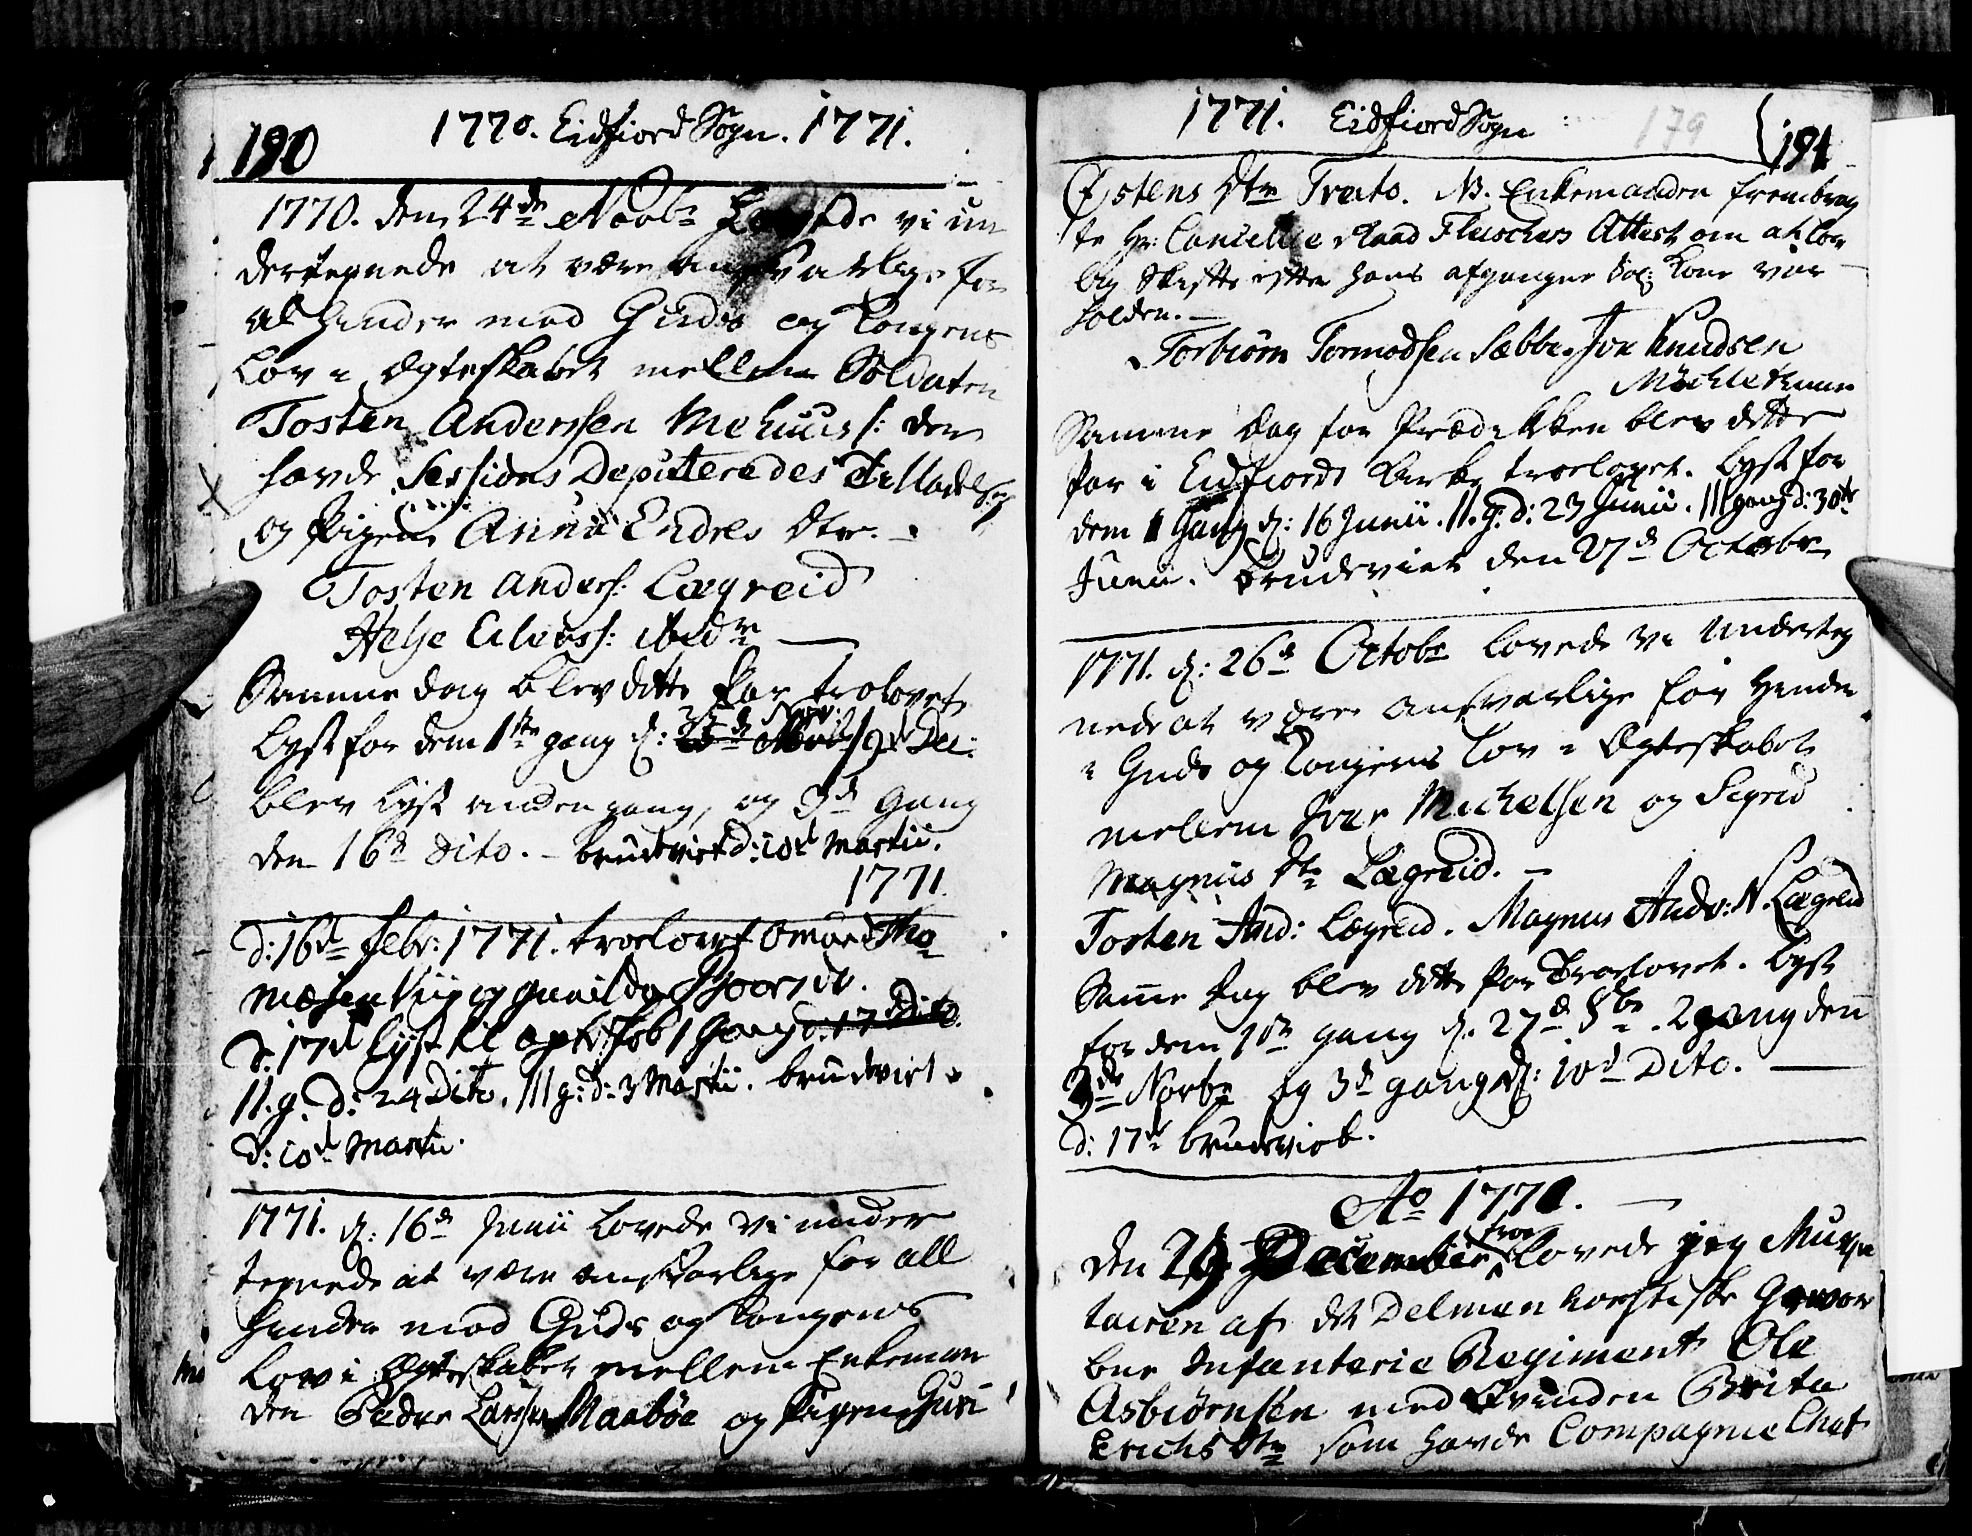 190
1770. Eidfiord Sogn. 1771.
1770. den 24de Novbr lovede vi un
dertegnede at være ansvarlige for
al Hinder mod Guds og Kongens
Lov i Ægteskabet mellem Soldaten
Tosten Anderssen Mehuus /: der
havde Sessions Deputeredes
og Pigen Anna Endres Dtr. -
Tosten Anders: Lægreid
Helje Eilerss: ibid
Samme dag blev dette Par trolovet
Lyst for dem 1ste gang d: 25d Nov. 9d Dec:
blev lyst anden gang, og 3d Gang
den 16d dito. - brudeviet d: 10d Martii.
1771
d: 16de Febr: 1771. troelovet Omund Tho
mæsen og Gunild
d. 17d lyst til ægtesk: 1 Gang d. 17 Dito.
II. g. d: 24 Dito. III g: d: 3 Martii. brudeviet
d: 10d Martii.
1771. d: 16d Junii lovede vi under
tegnede at være ansvarlige for all
Hinder mod Guds og Kongens
Lov i Ægteskabet mellem Enkeman
den Peder Larsen Maabøe og Pigen Guri
1771. Eidfiord Sogn
179
191
Østens Dtr Træto. NB. Enkemanden frembrag
te Hr: Cancellie Raad Fleischers Attest om at lov
lig Skifte efter hans afgangne Sal: Kone var
holden. -
Torbiørn Tormodsen Sæbbe. Jon Knudsen
Möchletuun
Samme Dag for Prædikken blev dette
Par i Eidfiords Kirke troelovet. Lyst for
dem 1 Gang d: 16 Junii. II. g. d: 23 Junii. III gang d: 30te
Junii. brudeviet den 27d Octobr
1771. d: 26d Octobr lovede vi underteg
nede at være ansvarlige for Hinder
i Guds og Kongens Lov i Ægteskabet
mellem Iver Michelsen og Sigrid
Magnus Dtr Lægreid. -
Tosten And: Lægreid. Magnus Andr: N. Lægreid
Samme Dag blev dette Par Troelovet. Lyst
for dem 1ste gang d. 27d 8br. 2 gang den
3de Novbr og 3d gang d: 10d Dito.
d: 17de brudeviet.
Ao 1770.
Den 29 December troe lovede jeg Musqe
tairen af det Delmenhorstiske Gewor
bne Infanterie Regiment Ole
Asbiørnsen med Qvinden Brita
Erichs Dtr som havde Compagnie Chef